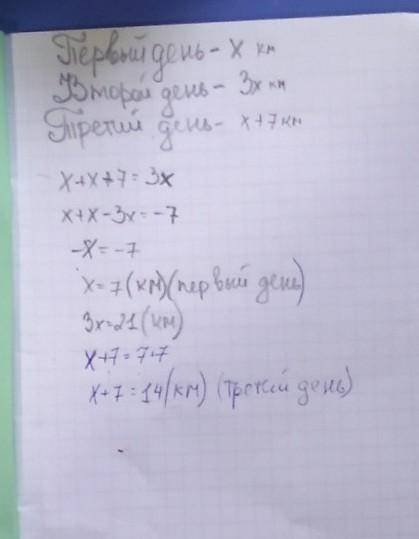 Первый день - x км
Второй день - 3x км
Третий день - x+7 км
x+x+7=3x
x+x-3x=-7
-x=-7
x=7(км)(первый день)
3x=21(км)
x+7=7+7
x+7=14(км) (третий день)